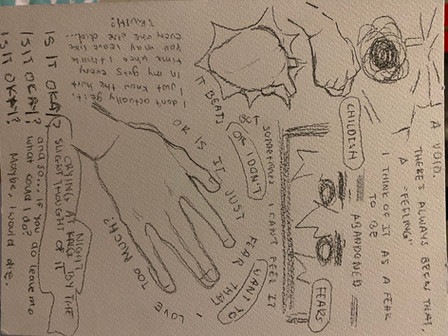 A VOID.
THERE'S ALWAYS BEEN THAT
A "FEELING"
I THINK OF IT AS A FEAR
TO BE
ABANDONED
CHILDISH
FEARS
IT BEATS
BUT
SOMETIMES I CAN'T FEEL IT
OR I DON'T
WANT TO
OR IS IT JUST FEAR THAT I LOVE TOO MUCH?
I don't actually get it.
just know the hurt
in my guts every
time when I think
you may leave like
everyone else did...
TRUTH?
IS IT OKAY?
IS IT OKAY?
IS IT OKAY?
CRYING AT NIGHT
BY THE
SLIGHT THOUGHT OF IT
and so... if you do leave me
what would I do?
Maybe, I would die.